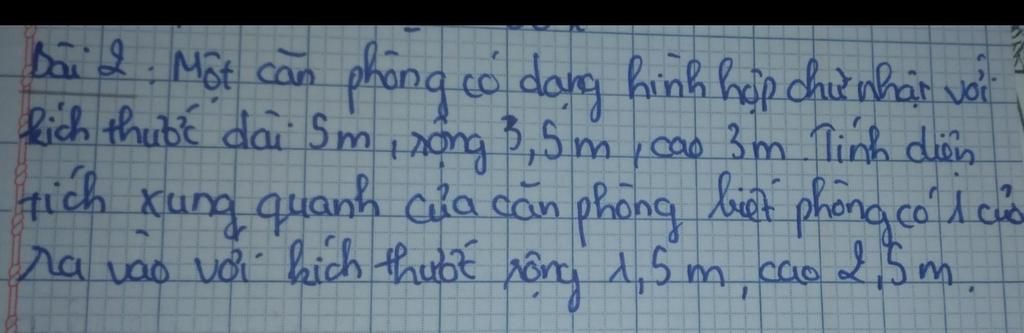 Bài 2: Một căn phòng có dạng hình hộp chữ nhật với
kích thước dài 5m, rộng 3,5m, cao 3m. Tính diện
tích xung quanh của căn phòng biết phòng có 1 cửa
ra vào với kích thước rộng 1,5m, cao 2,5m.